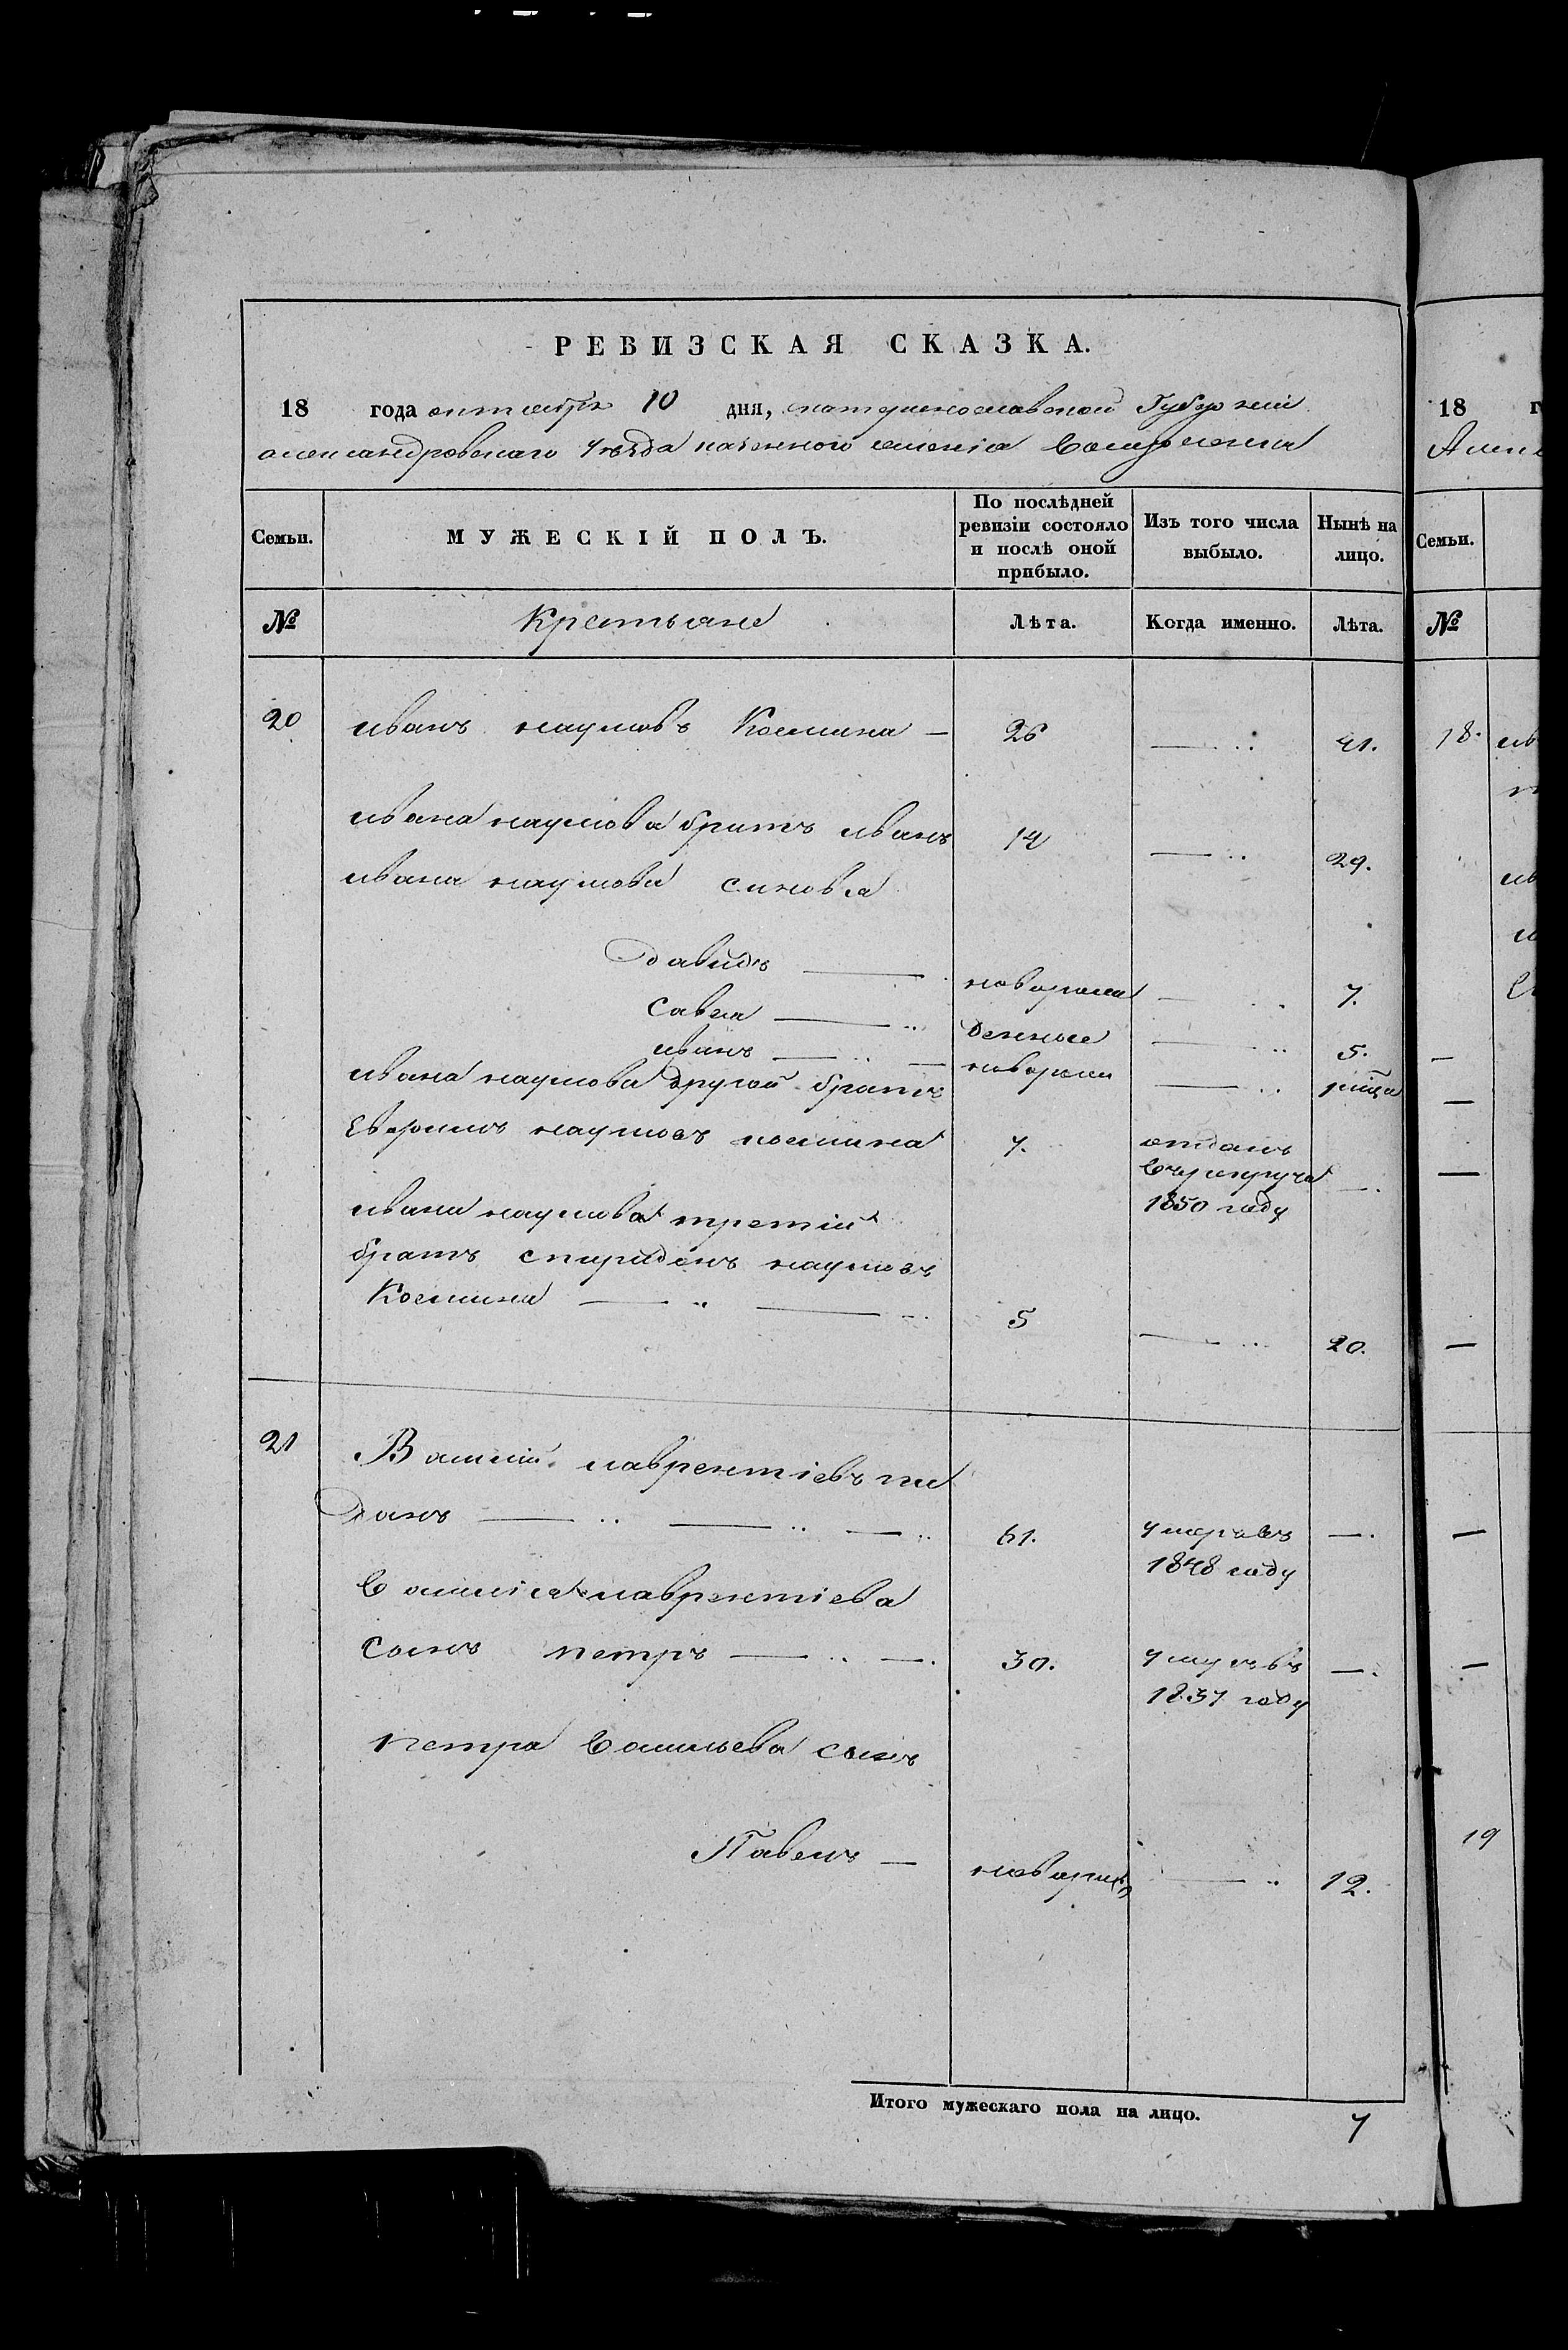 РЕВИЗСКАЯ СКАЗКА.
18 года октября 10 дня, екатеринославской Губернии
александровскаго уезда казенного селения
Семьи.
МУЖЕСКІЙ ПОЛЪ.
По послѣдней ревизіи состояло и послѣ оной прибыло.
Изъ того числа выбыло.
Нынѣ на лицо.
№
Крестьяне
Лѣта.
Когда именно.
Лѣта.
20 иванъ наумовъ Космина — 26 41.
ивана наумова братъ иванъ 14 29.
ивана наумова синовья
давидъ новорож 7.
савва денные 5.
иванъ новорож
ивана наумова другой братъ
наумовъ космина 7. отданъ
врекруты
1850 году
ивана наумова третій
братъ спиридонъ наумовъ
Космина 5 20.
21 Василий лаврентіевъ
61. умеръ въ
1848 году
василія лаврентіева
сынъ петръ 30. умеръ въ
1837 году
петра васильева сынъ
Павелъ — новорожд 12.
Итого мужескаго пола на лицо. 7
18
Семьи.
№
18.
19